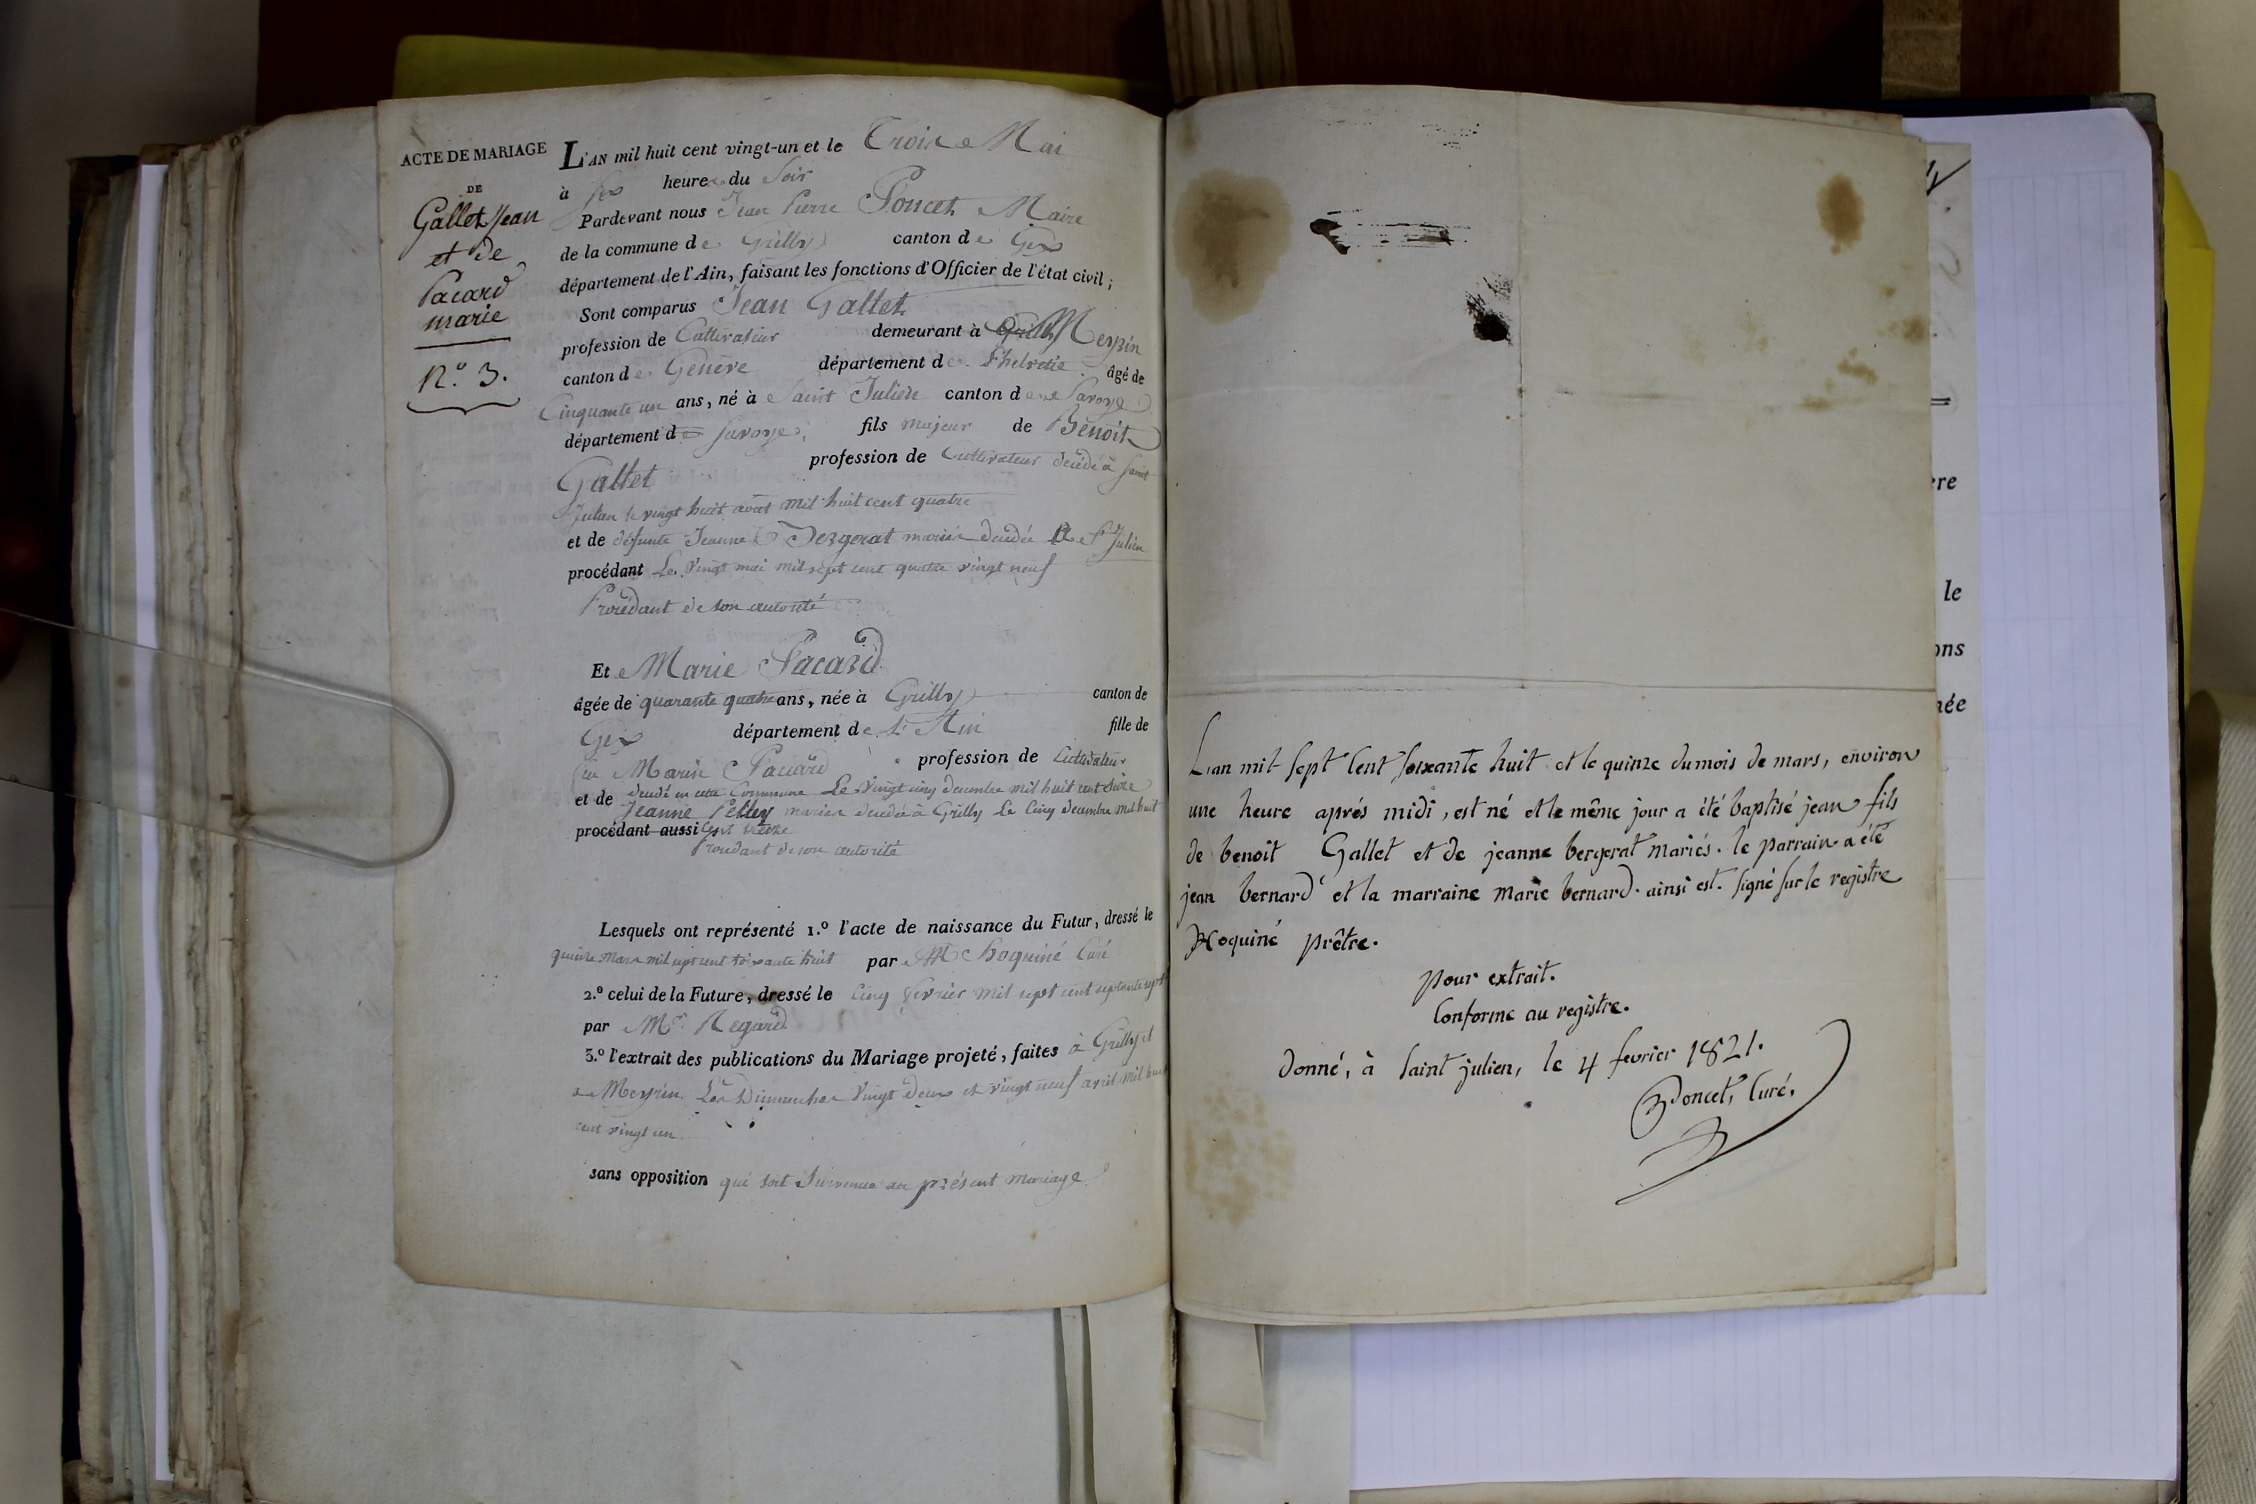 ACTE DE MARIAGE
DE
Gallet Jean
et de
Pacard
marie
N.º 3.
L'AN mil huit cent vingt-un et le Trois Mai
à Six heures du Soir
Pardevant nous Jean Pierre Poncet Maire
de la commune de Grilly canton de Gex
département de l'Ain, faisant les fonctions d'Officier de l'état civil ;
Sont comparus Jean Gallet
profession de Cultivateur demeurant à Meyrin
canton de Genève département de l'helvetie âgé de
Cinquante un ans, né à Saint Julien canton de Savoye
département de Savoye, fils majeur de Benoit
Gallet profession de Cultivateur décédé à Saint
Julien le vingt huit avril mil huit cent quatre
et de défunte Jeanne Bergerat mariés décédée à St Julien
procédant Le vingt mai mil sept cent quatre vingt neuf
Procédant de son autorité
Et Marie Pacard
âgée de quarante quatre ans, née à Grilly canton de
Gex département de l'Ain fille de
feu Marin Pacard profession de Cultivateur
décédé en cette Commune Le vingt cinq décembre mil huit cent
et de Jeanne Pelley mariés décédée à Grilly Le Cinq décembre mil huit
procédant aussi Cent treize
Procédant de son autorité
Lesquels ont représenté 1.º l'acte de naissance du Futur, dressé le
quinze Mars mil sept cent soixante huit par Mr Hoquiné Curé
2.º celui de la Future, dressé le cinq février mil sept cent septante sept
par Mr. Regard
3.º l'extrait des publications du Mariage projeté, faites à Grilly et
a Meyrin Les Dimanches Vingt deux et vingt neuf avril mil huit
cent vingt un
sans opposition qui soit Survenue au présent mariage
L'an mil sept cent soixante huit et le quinze du mois de mars, environ
une heure aprés midi, est né et le même jour a été baptisé jean fils
de benoit Gallet et de jeanne bergerat mariés. le parrain a été
jean bernard et la marraine marie bernard. ainsi est. signé sur le registre
Hoquiné prêtre.
pour extrait.
Conforme au registre.
donné, à saint julien, le 4 fevrier 1821.
Poncet, Curé.
re
le
ons
née